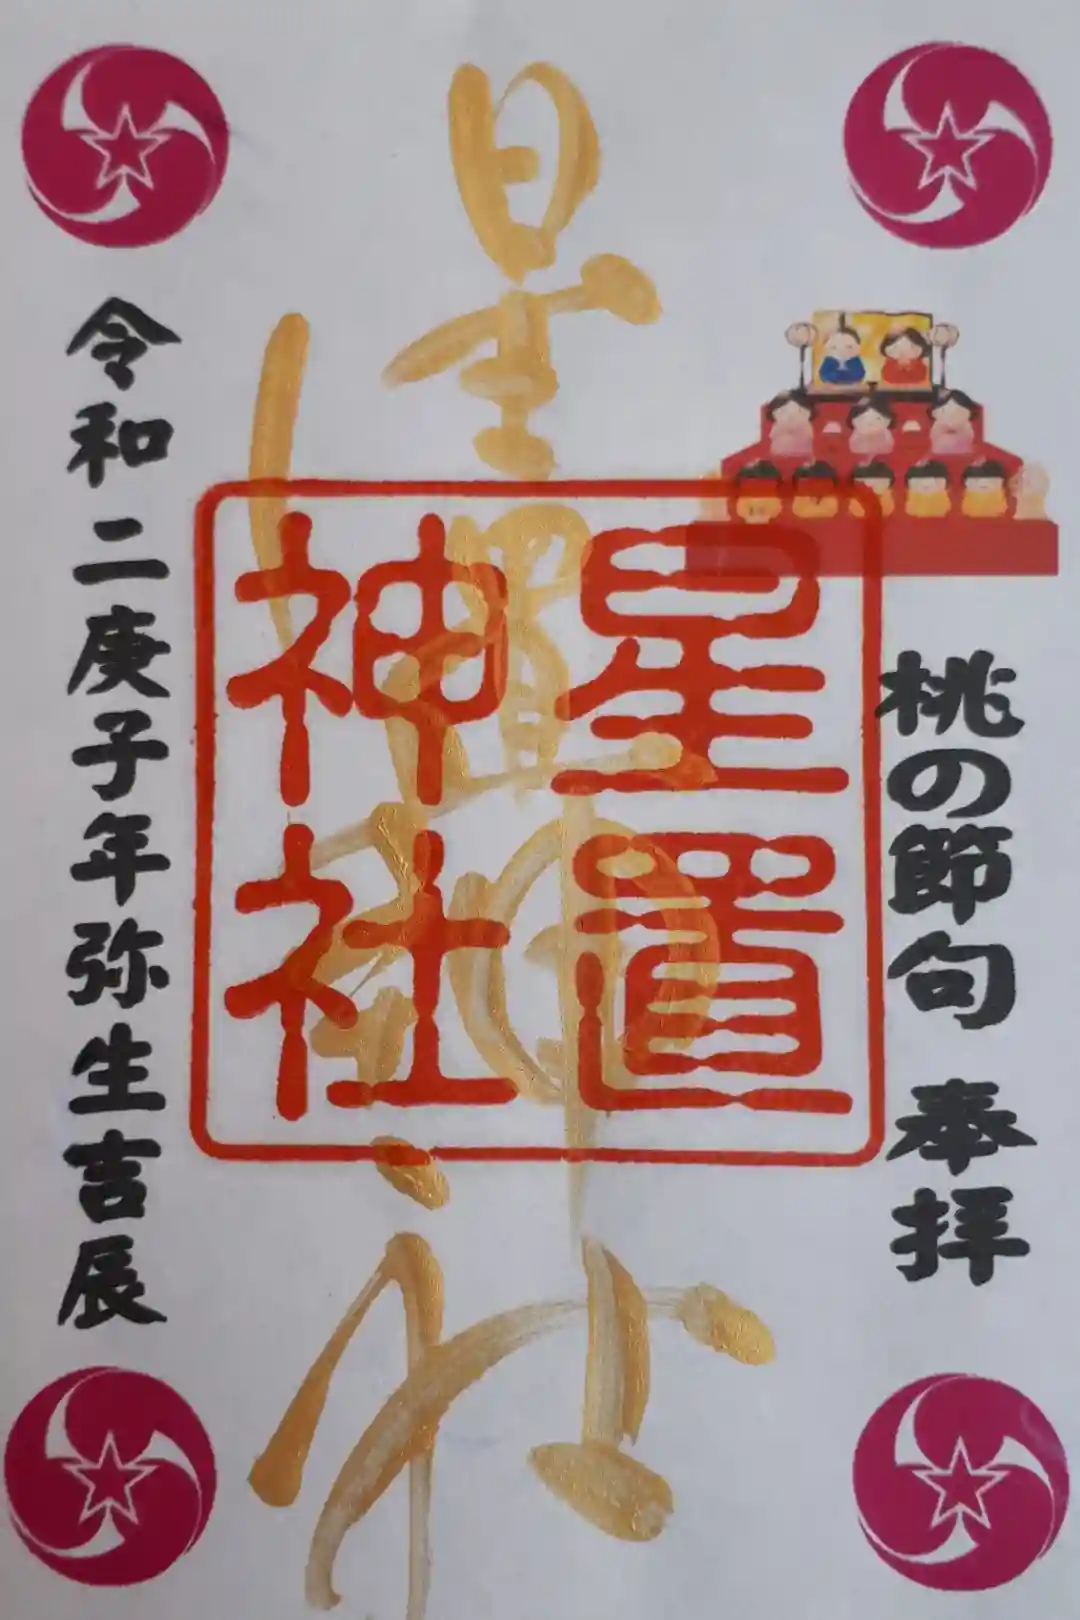 桃の節句 奉拝
星置神社
星置
神社
令和二庚子年弥生吉辰